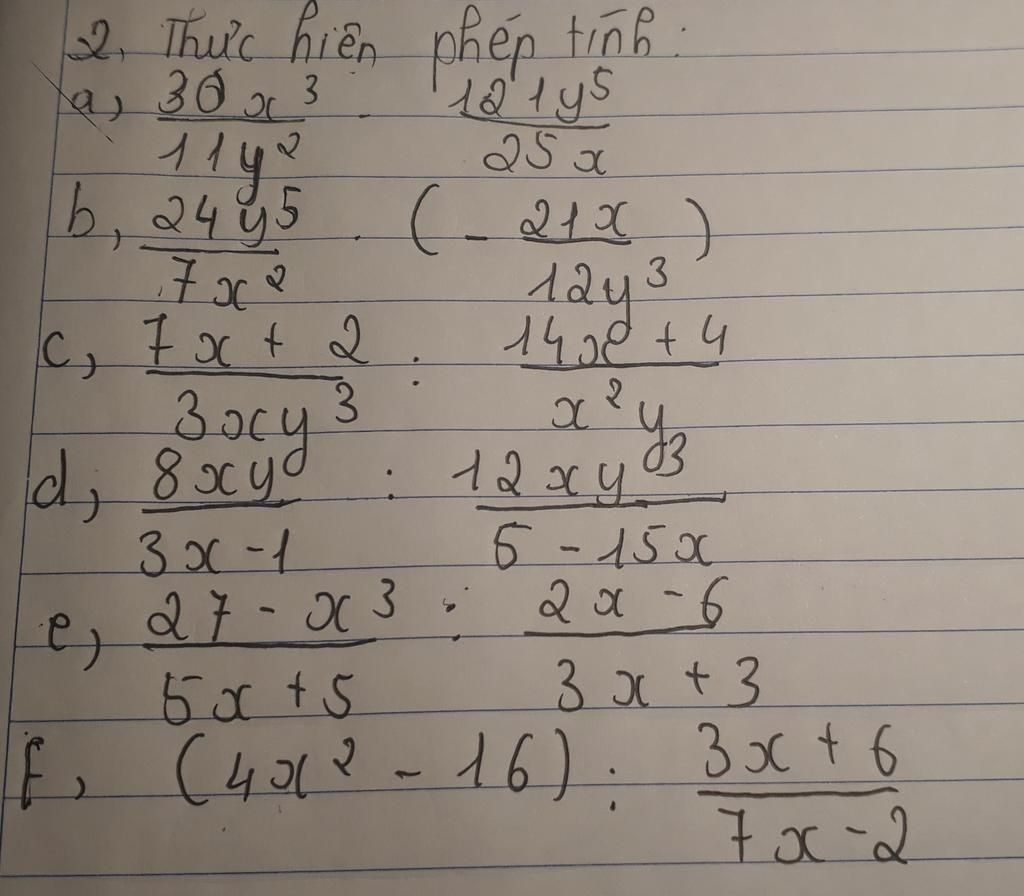 2, Thực hiện phép tính:
a, 30x³/11y² . 121y⁵/25x
b, 24y⁵/7x² . (- 21x/12y³)
c, 7x + 2/3xy³ : 14x + 4/x²y
d, 8xy/3x - 1 : 12xy³/5 - 15x
e, 27 - x³/5x + 5 : 2x - 6/3x + 3
f, (4x² - 16) : 3x + 6/7x - 2